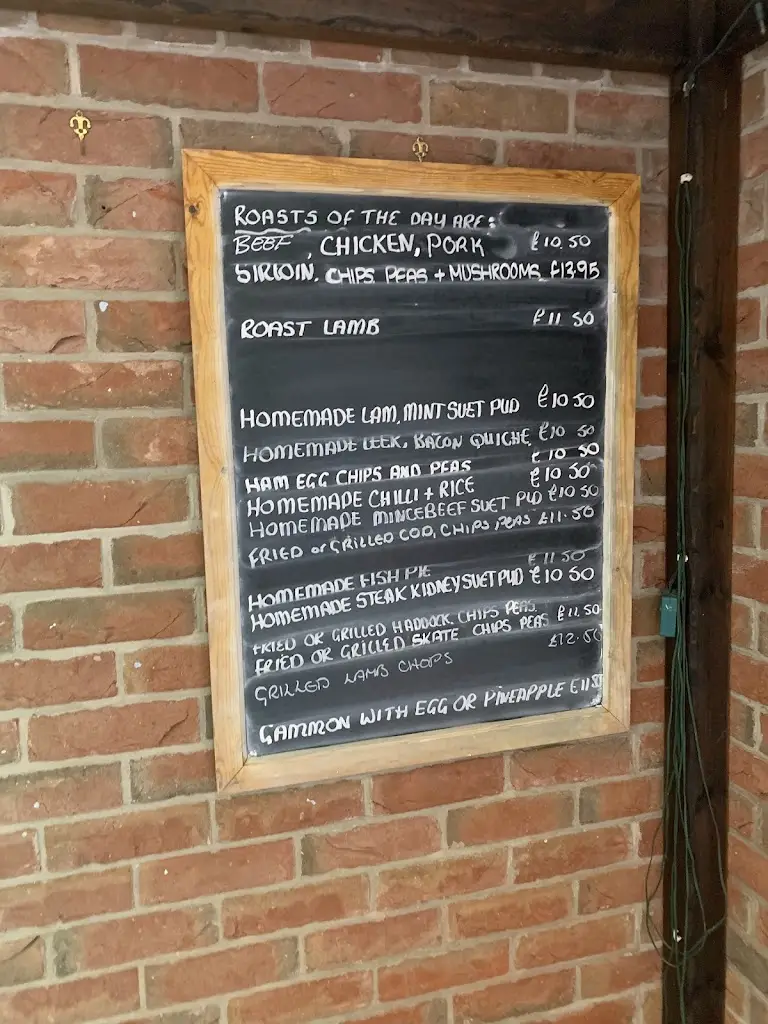 ROASTS OF THE DAY ARE:
BEEF, CHICKEN, PORK £10.50
SIRLOIN. CHIPS. PEAS + MUSHROOMS £13.95
ROAST LAMB £11 50
HOMEMADE LAM, MINT SUET PUD £10 50
HOMEMADE LEEK, BACON QUICHE, £10 50
HAM EGG CHIPS AND PEAS £10 50
HOMEMADE CHILLI + RICE £10 50
HOMEMADE MINCEBEEF SUET PUD £10 50
FRIED or GRILLED COD, CHIPS PEAS £11.50
HOMEMADE FISH PIE £11 50
HOMEMADE STEAK KIDNEY SUET PUD £10 50
FRIED OR GRILLED HADDOCK. CHIPS PEAS.
FRIED OR GRILLED SKATE CHIPS PEAS £11.50
GRILLED LAMB CHOPS £12.50
GAMMON WITH EGG OR PINEAPPLE £11